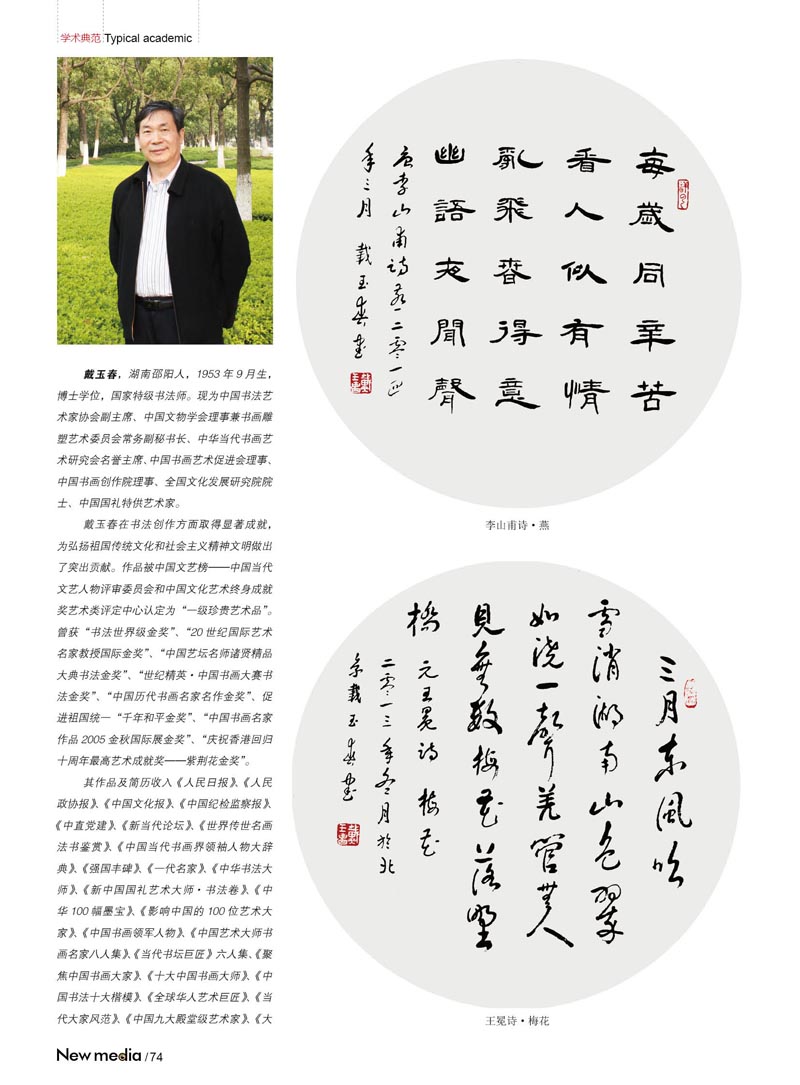 学术典范 Typical academic
戴玉春，湖南邵阳人，1953年9月生，
博士学位，国家特级书法师。现为中国书法艺
术家协会副主席、中国文物学会理事兼书画雕
塑艺术委员会常务副秘书长、中华当代书画艺
术研究会名誉主席、中国书画艺术促进会理事、
中国书画创作院理事、全国文化发展研究院院
士、中国国礼特供艺术家。
戴玉春在书法创作方面取得显著成就，
为弘扬祖国传统文化和社会主义精神文明做出
了突出贡献。作品被中国文艺榜——中国当代
文艺人物评审委员会和中国文化艺术终身成就
奖艺术类评定中心认定为“一级珍贵艺术品”。
曾获“书法世界级金奖”、“20世纪国际艺术
名家教授国际金奖”、“中国艺坛名师诸贤精品
大典书法金奖”、“世纪精英·中国书画大赛书
法金奖”、“中国历代书画名家名作金奖”、促
进祖国统一“千年和平金奖”、“中国书画名家
作品2005金秋国际展金奖”、“庆祝香港回归
十周年最高艺术成就奖——紫荆花金奖”。
其作品及简历收入《人民日报》、《人民
政协报》、《中国文化报》、《中国纪检监察报》、
《中直党建》、《新当代论坛》、《世界传世名画
法书鉴赏》、《中国当代书画界领袖人物大辞
典》、《强国丰碑》、《一代名家》、《中华书法大
师》、《新中国国礼艺术大师·书法卷》、《中
华100幅墨宝》、《影响中国的100位艺术大
家》、《中国书画领军人物》、《中国艺术大师书
画名家八人集》、《当代书坛巨匠》六人集、《聚
焦中国书画大家》、《十大中国书画大师》、《中
国书法十大楷模》、《全球华人艺术巨匠》、《当
代大家风范》、《中国九大殿堂级艺术家》、《大
每歲同辛苦
看人似有情
亂飛春得意
幽語夜聞聲
唐李山甫詩燕二零一四
年三月 戴玉春書
李山甫诗·燕
三月東風吹
雪消湖南山色翠
如澆一聲羌管無人
見無數梅花落野
橋 元王冕詩 梅花
二零一三年冬月於北
京戴玉春書
王冕诗·梅花
New media /74